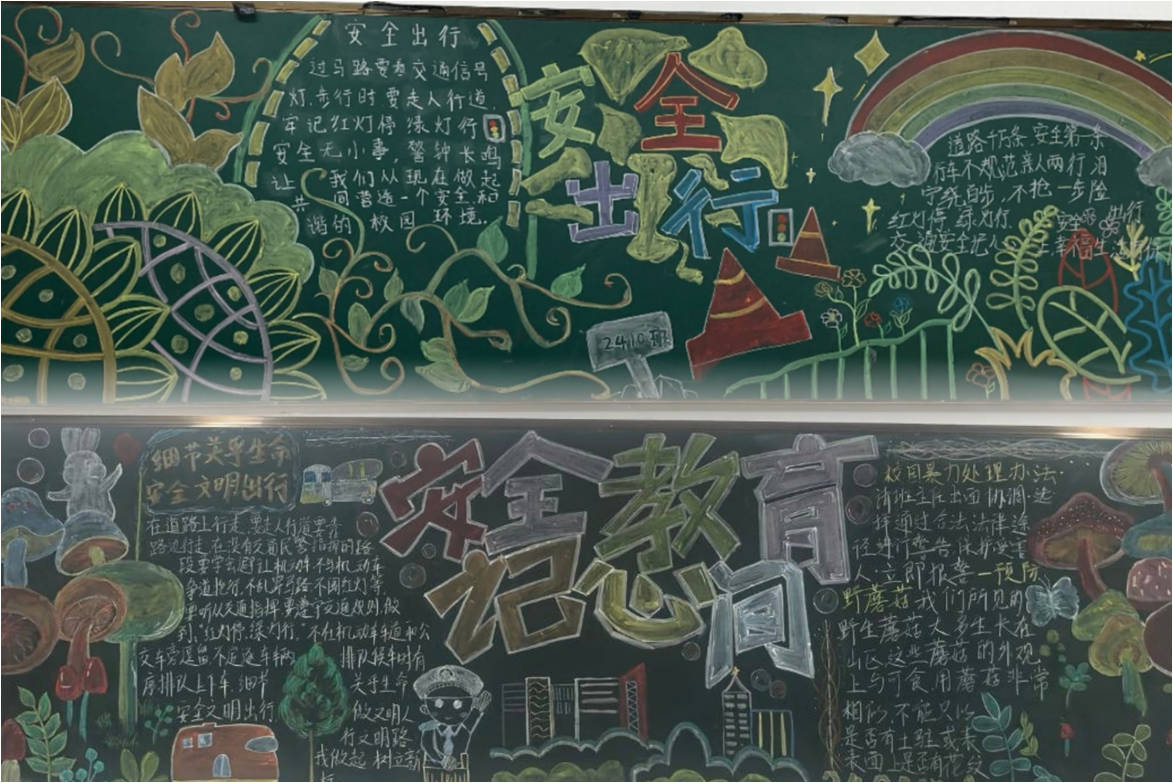 安全出行
过马路要看交通信号
灯,步行时要走人行道,
牢记红灯停 绿灯行
安全无小事,警钟长鸣
让我们从现在做起
共同营造一个安全和
谐的校园环境。
安全
出行
2410班
道路千万条,安全第一条
行车不规范,亲人两行泪
宁绕百步,不抢一步险
红灯停 绿灯行
细节关乎生命
安全文明出行
在道路上行走,要走人行道要靠
路边行走,在没有交通民警指挥的路
段要学会避让机动车不与机动车
争道抢行,不乱穿马路不闯红灯等,
要听从交通指挥要遵守交通规则,做
到"红灯停,绿灯行"不在机动车车道和公
交车旁逗留不追逐车辆
排队候车时有
序排队上车,细节
关乎生命
安全文明出行
做文明人
行文明路
我做起 树立新
安全教育
记心间
校园暴力处理办法
请班主任出面协调 选
择通过合法法律途
径进行警告保护受害
人立即报警一预防
野蘑菇 我们所见的
野生蘑菇大多生长在
山区这些蘑菇的外观
上与可食用蘑菇非常
相似,不能只以
是否有土驻或表
表面上是否有花纹